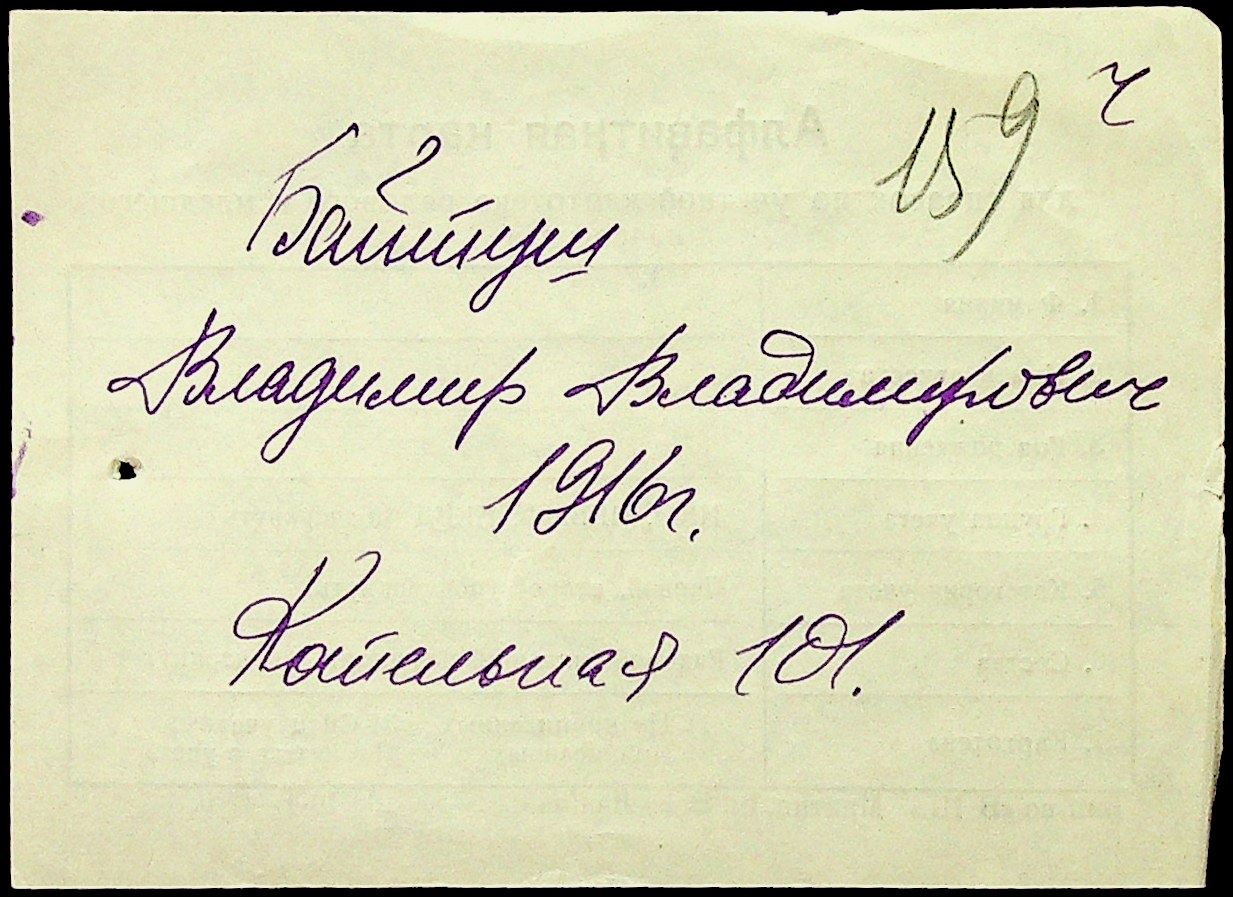 159 ч
Байтуш
Владимир Владимирович
1916 г.
Котельная 101.